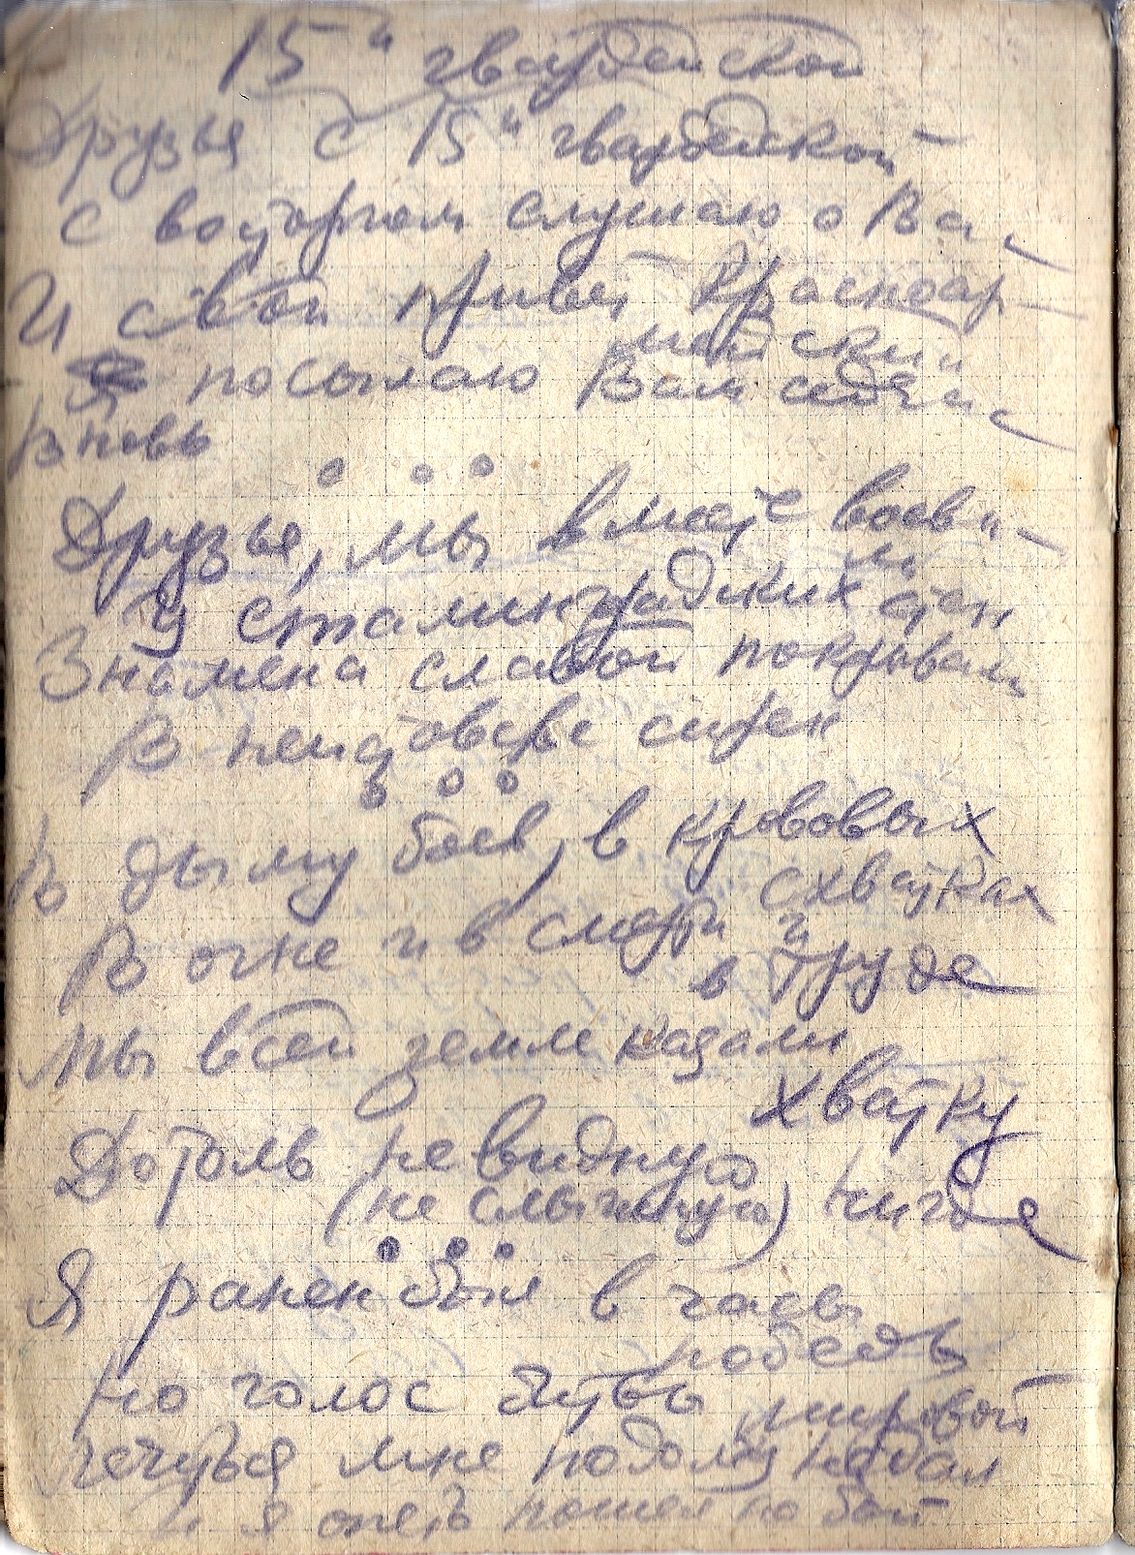 15й гвардейской
Друзья с 15й гвардейской
с восторгом слушаю о Вас
И свой привет Красноар-
мейский
посылаю Вам сейчас
Вновь
Друзья, мы вместе воева-
ли
У сталинградских стен
Знамена славой покрывали
В неистовстве сирен
В дыму боев, в крововых
схватках
В огне и в смерти и
в труде
мы всей земле казали
хватку
Дотоль не видную
(не слышную) нигде
Я ранен был в часы
победы
Но голос битвы мировой
мне подолгу
и я опять пошел по